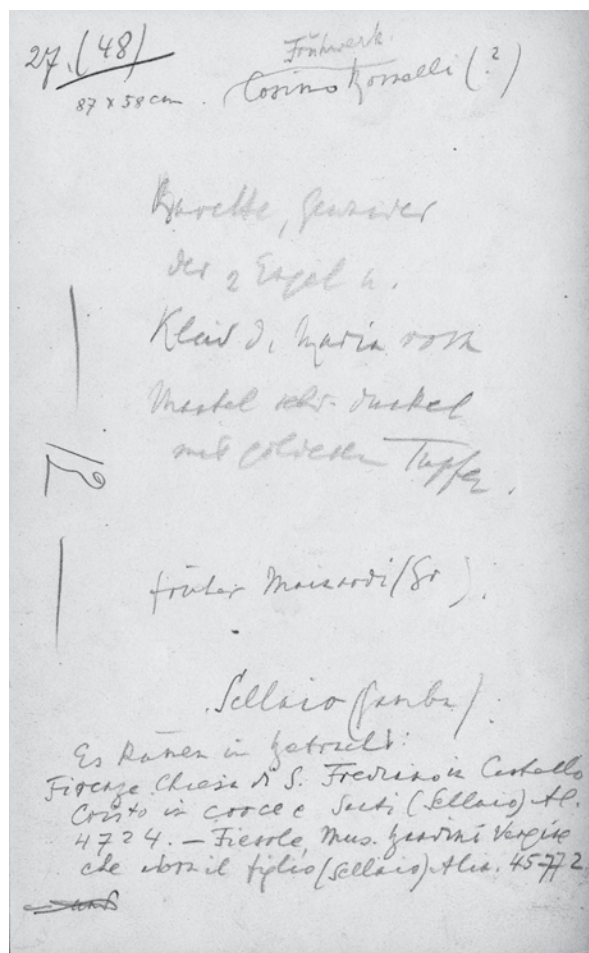 27. (48)
Frühwerk.
87 x 58 cm. Cosimo Rosselli (?)
Gewänder
der 2 Engel u.
Kleid d. Maria rosa
Mantel sehr dunkel
mit goldenen Tupfen.
früher Mainardi (Gr ).
Sellaio (Gamba).
Es kämen in Betracht:
Firenze Chiesa di S. Frediano in Castello
Cristo in croce e Santi (Sellaio) Al.
4724. — Fiesole, Mus. Bandini Vergine
che adora il figlio (Sellaio) Alin. 45772